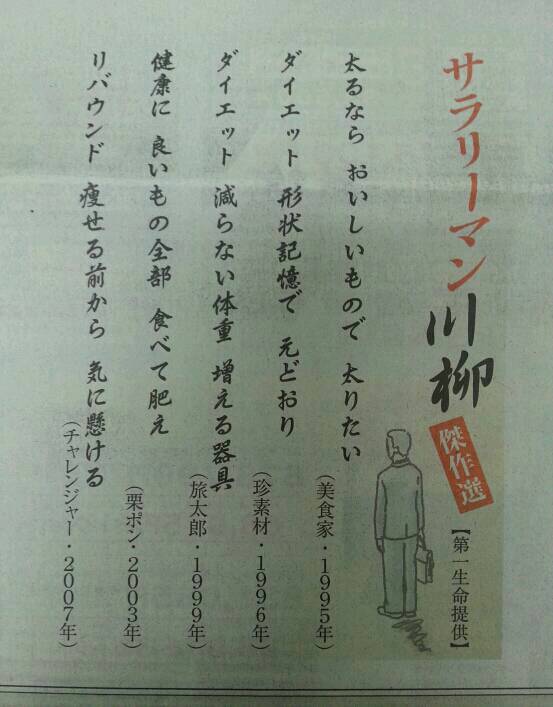 サラリーマン川柳
傑作選
【第一生命提供】
太るなら おいしいもので 太りたい
(美食家・1995年)
ダイエット 形状記憶で 元どおり
(珍素材・1996年)
ダイエット 減らない体重 増える器具
(旅太郎・1999年)
健康に 良いもの全部 食べて肥え
(栗ポン・2003年)
リバウンド 痩せる前から 気に懸ける
(チャレンジャー・2007年)